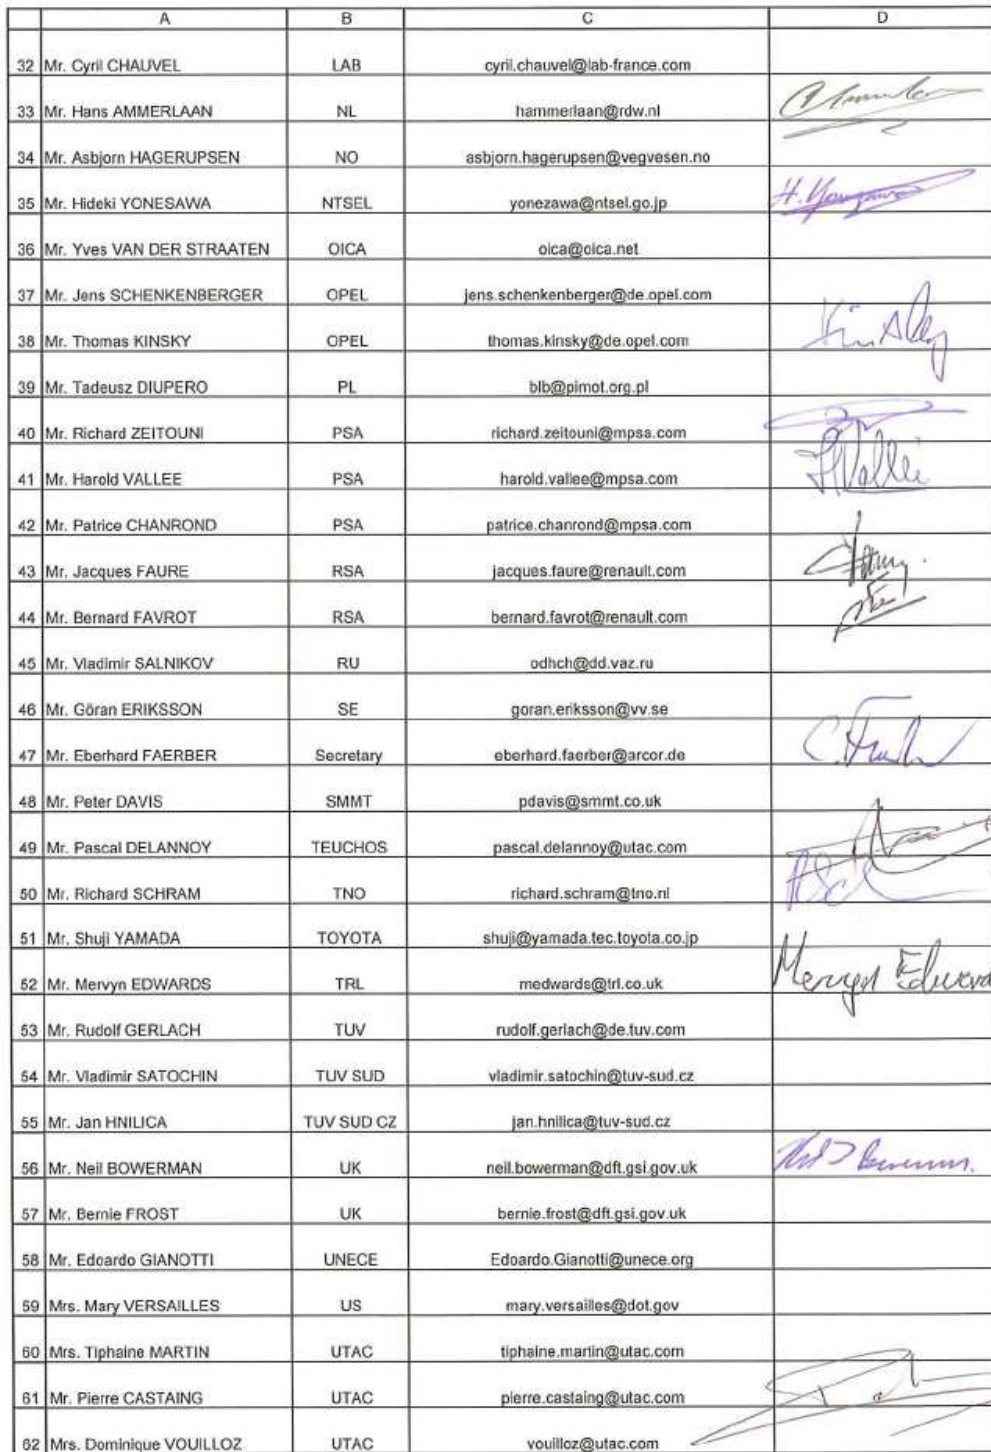 A B C D
32 Mr. Cyril CHAUVEL LAB cyril.chauvel@lab-france.com
33 Mr. Hans AMMERLAAN NL hammerlaan@rdw.nl
34 Mr. Asbjorn HAGERUPSEN NO asbjorn.hagerupsen@vegvesen.no
35 Mr. Hideki YONESAWA NTSEL yonezawa@ntsel.go.jp
36 Mr. Yves VAN DER STRAATEN OICA oica@oica.net
37 Mr. Jens SCHENKENBERGER OPEL jens.schenkenberger@de.opel.com
38 Mr. Thomas KINSKY OPEL thomas.kinsky@de.opel.com Kinsky
39 Mr. Tadeusz DIUPERO PL blb@pimot.org.pl
40 Mr. Richard ZEITOUNI PSA richard.zeitouni@mpsa.com
41 Mr. Harold VALLEE PSA harold.vallee@mpsa.com HVallée
42 Mr. Patrice CHANROND PSA patrice.chanrond@mpsa.com
43 Mr. Jacques FAURE RSA jacques.faure@renault.com
44 Mr. Bernard FAVROT RSA bernard.favrot@renault.com
45 Mr. Vladimir SALNIKOV RU odhch@dd.vaz.ru
46 Mr. Göran ERIKSSON SE goran.eriksson@vv.se
47 Mr. Eberhard FAERBER Secretary eberhard.faerber@arcor.de
48 Mr. Peter DAVIS SMMT pdavis@smmt.co.uk
49 Mr. Pascal DELANNOY TEUCHOS pascal.delannoy@utac.com
50 Mr. Richard SCHRAM TNO richard.schram@tno.nl
51 Mr. Shuji YAMADA TOYOTA shuji@yamada.tec.toyota.co.jp
52 Mr. Mervyn EDWARDS TRL medwards@trl.co.uk Mervyn Edward
53 Mr. Rudolf GERLACH TUV rudolf.gerlach@de.tuv.com
54 Mr. Vladimir SATOCHIN TUV SUD vladimir.satochin@tuv-sud.cz
55 Mr. Jan HNILICA TUV SUD CZ jan.hnilica@tuv-sud.cz
56 Mr. Neil BOWERMAN UK neil.bowerman@dft.gsi.gov.uk
57 Mr. Bernie FROST UK bernie.frost@dft.gsi.gov.uk
58 Mr. Edoardo GIANOTTI UNECE Edoardo.Gianotti@unece.org
59 Mrs. Mary VERSAILLES US mary.versailles@dot.gov
60 Mrs. Tiphaine MARTIN UTAC tiphaine.martin@utac.com
61 Mr. Pierre CASTAING UTAC pierre.castaing@utac.com
62 Mrs. Dominique VOUILLOZ UTAC vouilloz@utac.com